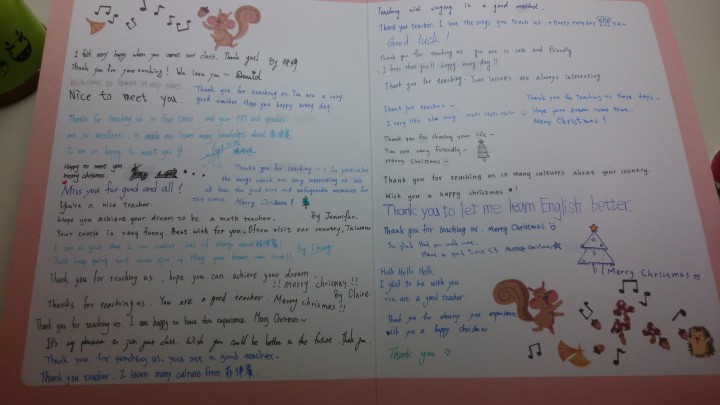 I felt very happy when you comes our class. Thank you!
Thank you for your teaching! We love you ~ Donald
Welcome to Taiwan
Nice to meet you.
Thank you for teaching us. You are a very
good teacher. Hope you happy every day.
Thanks for teaching us in four times, and your PPT and speaking
are so excellent, it made me learn many knowledge about 菲律賓
I am so happy to meet you
Happy to meet you
merry christmas.
Thanks you for teaching
the songs which are very interesting. We
all have the good time and unforgetable memories for
this times. Merry Christmas!
Miss you for good and all!
You're a nice teacher.
Hope you achieve your dream to be a math teacher. By Jennifer.
Your course is very funny. Best wish for you. Often visit our country, Taiwan
I am so glad that I can realize lots of things about 菲律賓!
Just keep going and never give up. May your dream come true!!
Thank you for teaching us, hope you can achieve your dream
!! merry chrismas !!
By Claire
Thanks for teaching us. You are a good teacher. Merry chrismas!!
Thank you for teaching us. I am happy to have this experience. Merry Christmas~
It's my pleasure to join your class. Wish you could be better in the future. Thank you.
Thank you for teaching us, you are a good teacher.
Thank you teacher. I learn many culture from 菲律賓
Teaching with singing is a good method.
Thank you teacher. I love the songs you teach us. Happy everyday
Good luck!
Thank you for teaching us you are so nice and friendly
I hope that you'll happy every day!!
Thank you for teaching. Your lessons are always interesting
Thank you teacher~
I very like the song
Thank you for teaching us these days.
Hope your dream come true.
Merry Christmas!
Thank you for sharing your life~
You are very friendly~
Merry Christmas~
Thank you for teaching us so many cultures about your country.
Wish you a happy christmas
Thank you to let me learn English better.
Thank you for teaching us. Merry Christmas
So glad that you with us.
Have a good time <3 Merry Christmas
Merry Christmas
Hello Hello Hello,
I glad to be with you.
You are a good teacher.
Thank you for sharing your experience
wish you a happy christmas
Thank you